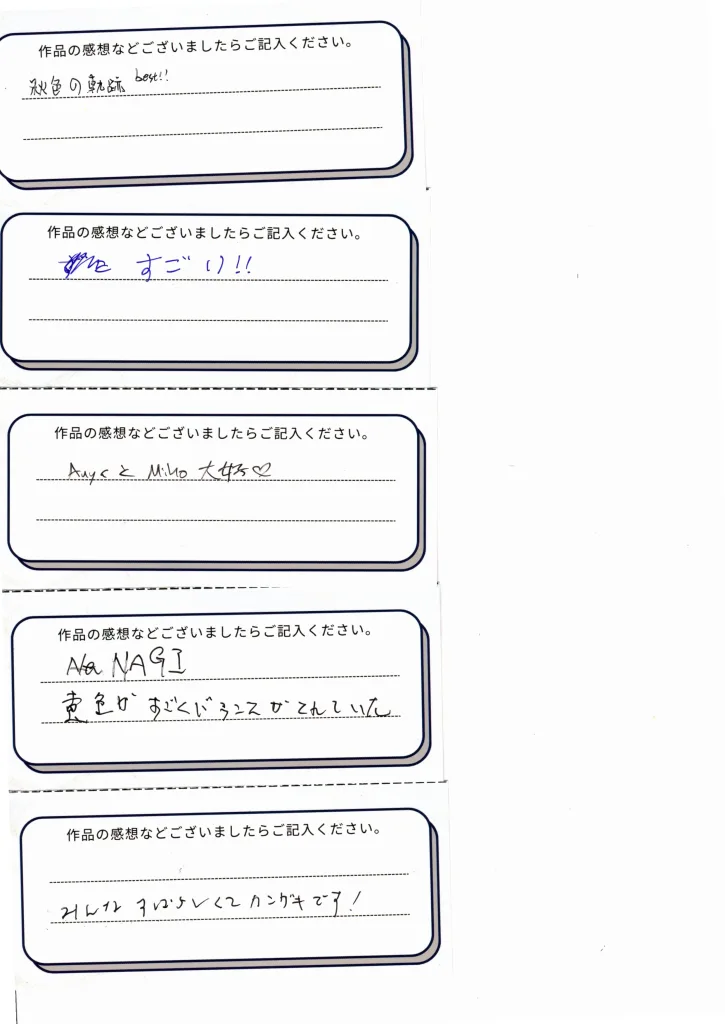 作品の感想などございましたらご記入ください。
秋色の軌跡 best!!
作品の感想などございましたらご記入ください。
すごい!!
作品の感想などございましたらご記入ください。
と Miho 大好♡
作品の感想などございましたらご記入ください。
NAGI
色がすごくばらんスがとれていた
作品の感想などございましたらご記入ください。
みんなすばらしくてカンゲキです!